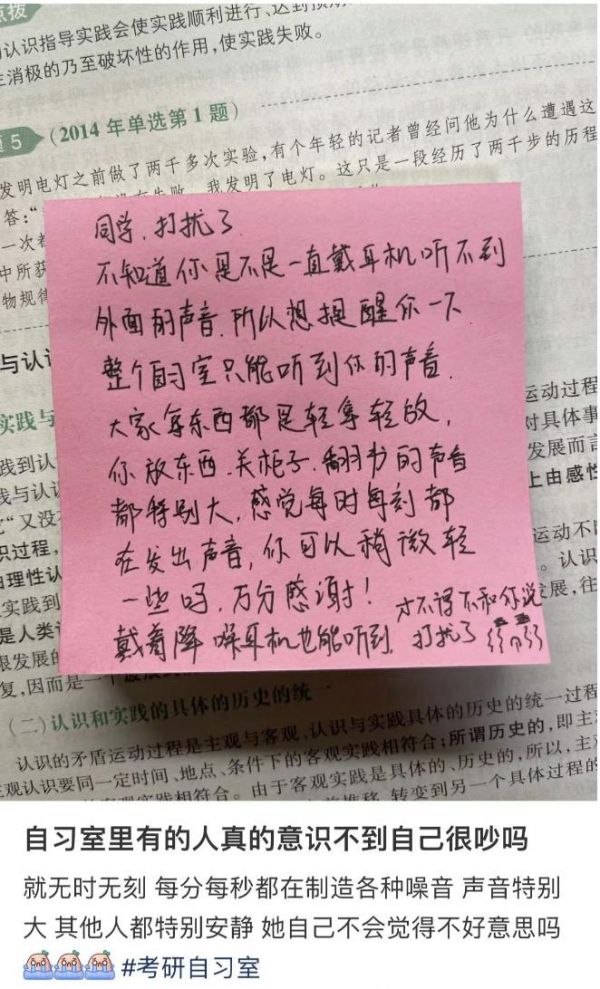 点拨
认识指导实践会使实践顺利进行、达到预期
消极的乃至破坏性的作用，使实践失败。
题5 （2014年单选第1题）
发明电灯之前做了两千多次实验，有个年轻的记者曾经问他为什么遭遇这
答：“ 我发明了电灯。这只是一段经历了两千步的历程
一次都
中所获
物规律
同学、打扰了
不知道你是不是一直戴耳机听不到
外面的声音，所以想提醒你一下
整个自习室只能听到你的声音．
大家拿东西都是轻拿轻放，
你放东西．关柜子．翻书的声音
都特别大，感觉每时每刻都
在发出声音，你可以稍微轻
一些吗，万分感谢！
戴着降噪耳机也能听到，才不得不和你说
打扰了
与认识
实践与
践到认
践与认识
”又没
识过程，
由理性认
实践到
是人类认
限发展的
复，因而是一个
运动过程
对具体事
发展而言
上由感性
运动不断
。认识
发展，往
（二）认识和实践的具体的历史的统一
认识的矛盾运动过程是主观与客观、认识与实践具体的历史的统一过程
观认识要同一定时间、地点、条件下的客观实践相符合；所谓历史的，即主
客观实践相符合。由于客观实践是具体的、历史的，所以，主
推移、转变到另一个具体过程的
自习室里有的人真的意识不到自己很吵吗
就无时无刻 每分每秒都在制造各种噪音 声音特别
大 其他人都特别安静 她自己不会觉得不好意思吗
#考研自习室